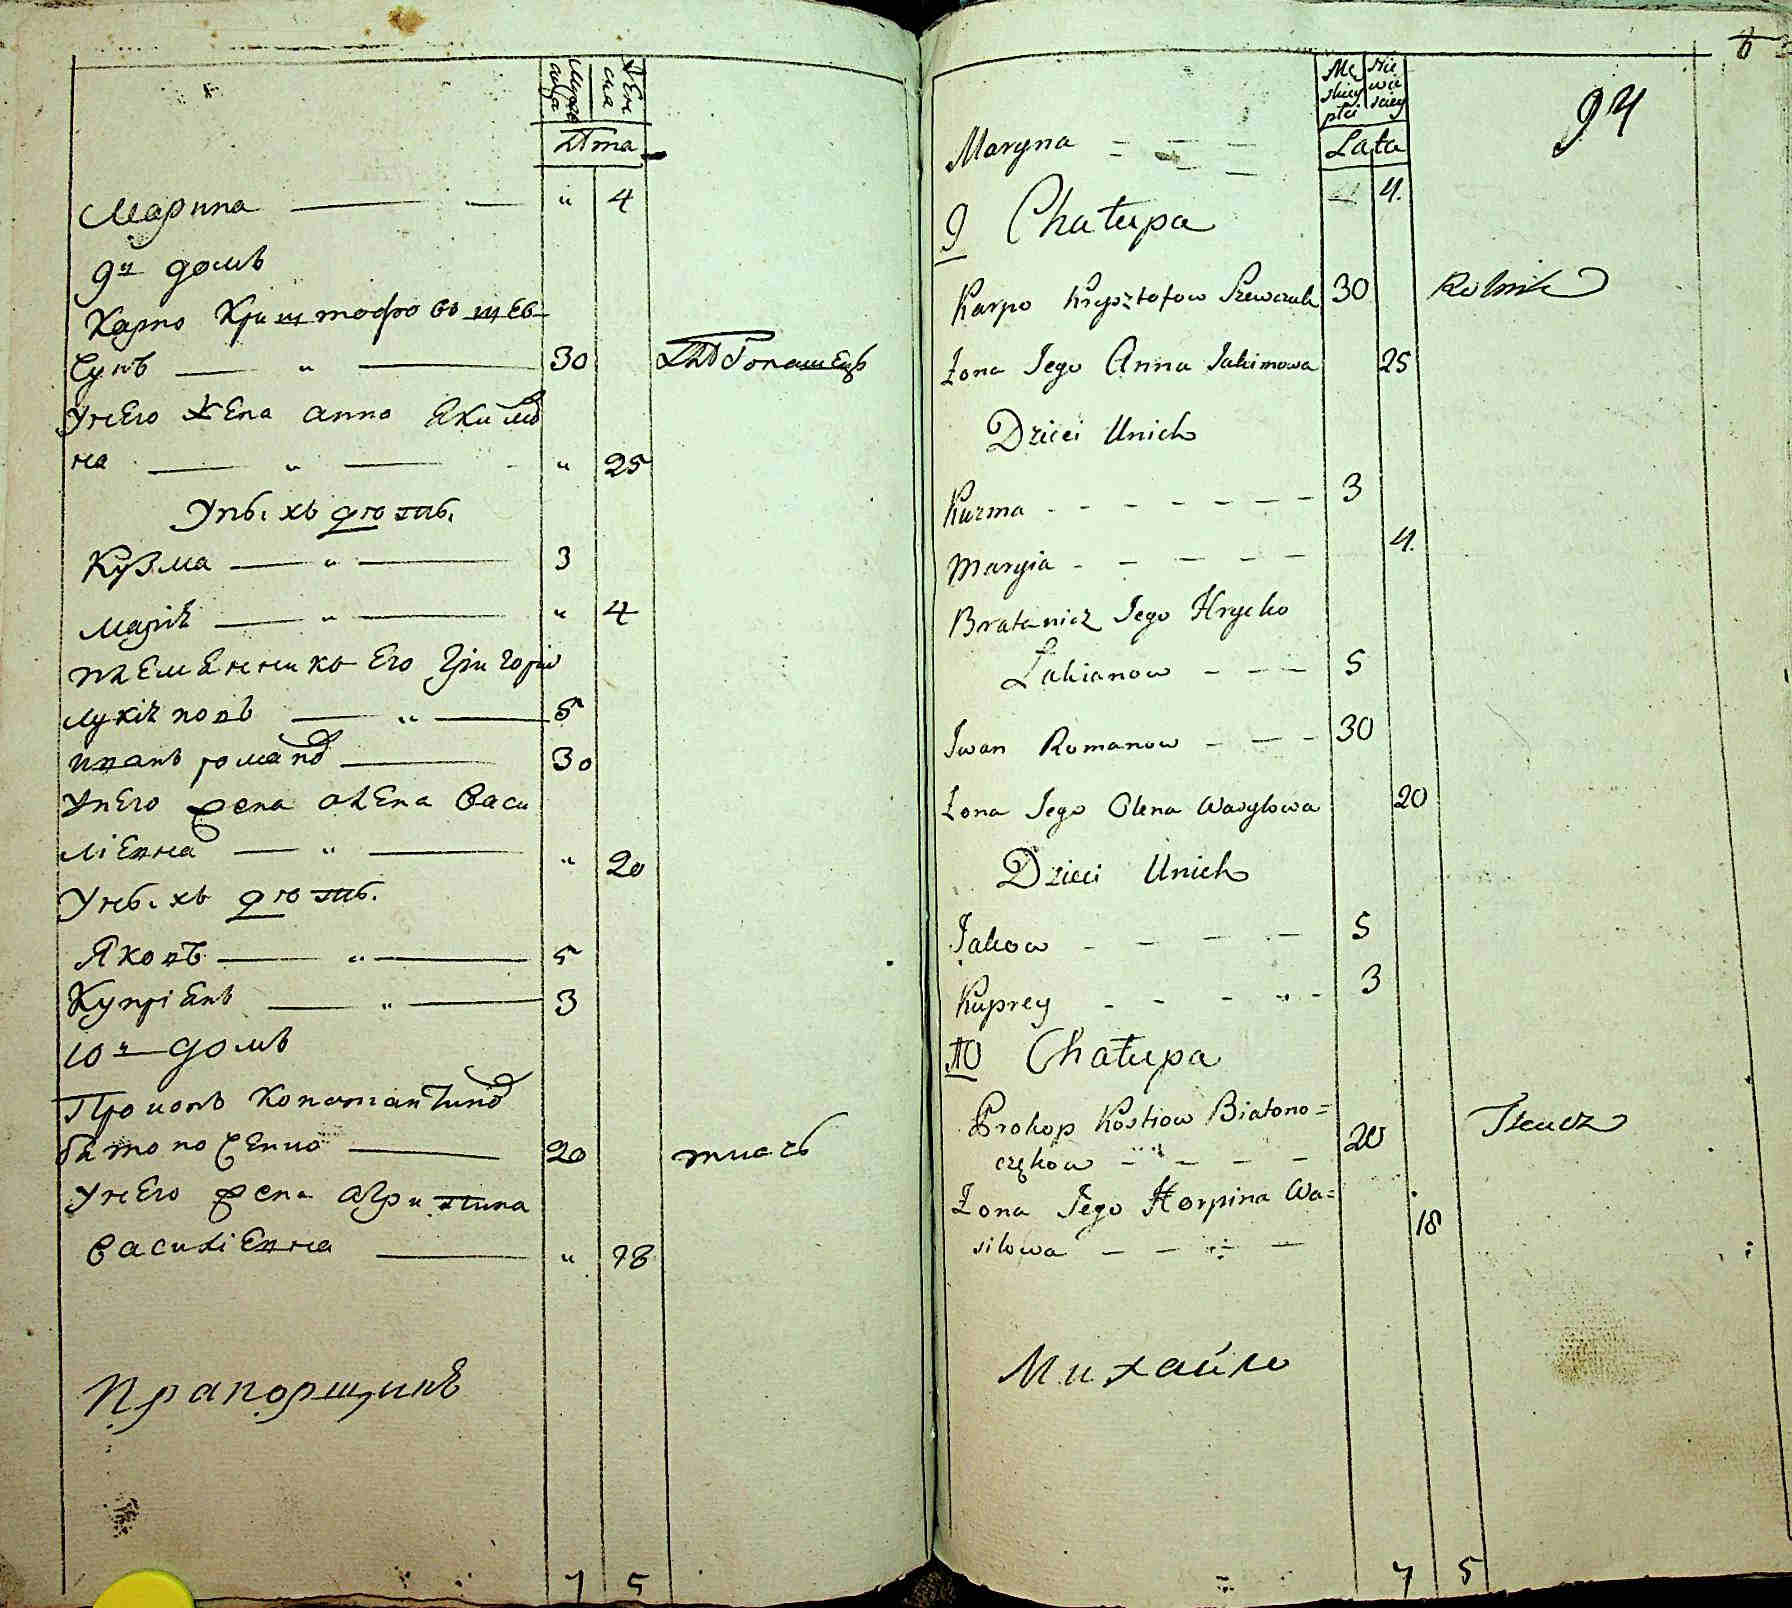 Мужеска
Женска
Лѣта
Марина — — " 4
9й домъ
Карпо Криштофовъ шев-
чукъ — " — 30
У него жена анна Якимов
на — " — " 25
У нѣхъ дѣти.
Кузма — " — 3
Марія — " — " 4
племенникъ его Григорій
лукіановъ — " — 5
иванъ романов — 30
У него жена олена Васи
ліевна — " — " 20
У нѣхъ дѣти.
Яковъ — " — 5
Купріянъ — " — 3
10й домъ
Прокопъ Константинов
— 20 ткачъ
У него жена
Василіевна — " 18
Прапорщикъ
7 5
6
Męskiey płci
Niewieściey
Lata
94
Maryna – – – 4.
9 Chałupa
Karpo Krysztofow Szewczuk 30 Rolnik
Żona Jego Anna Jakimowa 25
Dzieci Unich
Kuzma - - - - - - 3
Maryia - - - - - 4.
Bratanicz Jego Hrycko
Łukianow - - - 5
Iwan Romanow - - - 30
Żona Jego Olena Wasylowa 20
Dzieci Unich
Jakow - - - - 5
Kuprey - - - - - 3
10 Chałupa
Prokop Kostiow Białono=
czękow - - - - 20 Tkacz
Żona Jego Horpina Wa=
silowa - - - - 18
Михайло
7 5